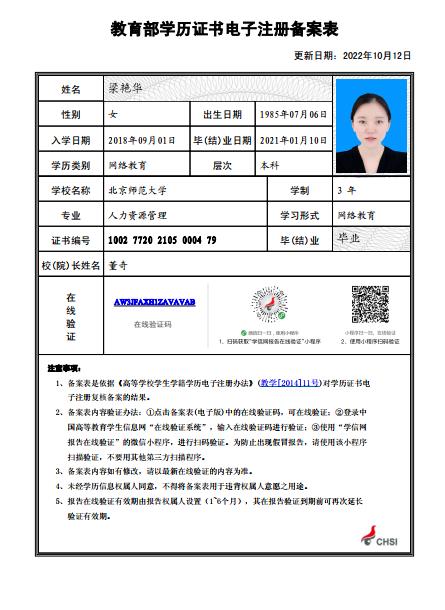 教育部学历证书电子注册备案表
更新日期：2022年10月12日
姓名 梁艳华
性别 女 出生日期 1985年07月06日
入学日期 2018年09月01日 毕(结)业日期 2021年01月10日
学历类别 网络教育 层次 本科
学校名称 北京师范大学 学制 3 年
专业 人力资源管理 学习形式 网络教育
证书编号 1002 7720 2105 0004 79 毕(结)业 毕业
校(院)长姓名 董奇
在线验证
AW3JFAXH1ZAVAVAB
在线验证码
微信扫一扫，使用小程序
1、扫码获取"学信网报告在线验证"小程序
小程序扫一扫，在线验证
2、使用小程序扫码验证
注意事项：
1、备案表是依据《高等学校学生学籍学历电子注册办法》(教学[2014]11号)对学历证书电
子注册复核备案的结果。
2、备案表内容验证办法：①点击备案表(电子版)中的在线验证码，可在线验证；②登录中
国高等教育学生信息网“在线验证系统”，输入在线验证码进行验证；③使用“学信网
报告在线验证”的微信小程序，进行扫码验证。为防止出现假冒报告，请使用该小程序
扫描验证，不要用其他第三方扫描程序。
3、备案表内容如有修改，请以最新在线验证的内容为准。
4、未经学历信息权属人同意，不得将备案表用于违背权属人意愿之用途。
5、报告在线验证有效期由报告权属人设置（1~6个月），其在报告验证到期前可再次延长
验证有效期。
CHSI